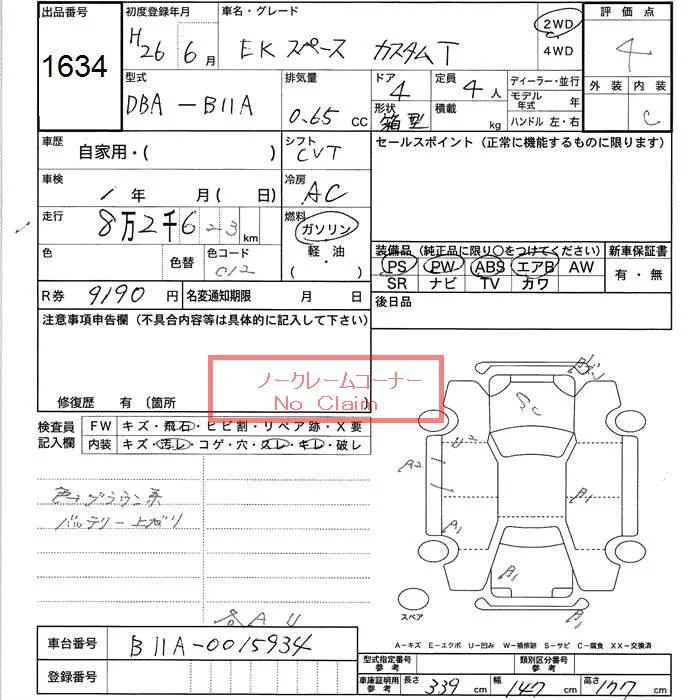 出品番号 1634
初度登録年月 H26 6月
車名・グレード EKスペース カスタムT
2WD
4WD
評価点 4
外装 内装 C
型式 DBA-B11A
排気量 0.65 CC
ドア 4
形状 箱型
定員 4人
積載 kg
ディーラー・並行
モデル年式 年
ハンドル 左・右
車歴 自家用・( )
シフト CVT
セールスポイント (正常に機能するものに限ります)
車検 1年 月( 日)
冷房 AC
走行 8万2千623 km
燃料 ガソリン
軽・油
( ・ )
色 色替 色コード C12
装備品 (純正品に限り○をつけてください) 新車保証書
PS PW ABS エアB AW 有・無
SR ナビ TV カワ
R券 9190円 名変通知期限 月 日
後日品
注意事項申告欄 (不具合内容等は具体的に記入して下さい)
ノークレームコーナー
No Claim
修復歴 有 〔箇所 〕
検査員記入欄 FW キズ・飛石・ヒビ割・リペア跡・X要
内装 キズ・汚レ・コゲ・穴・スレ・キレ・破レ
色→ブラウン系
バッテリー上がり
A U
U2
A2
A1
B1
B1
B1
スペア
A-キズ E-エクボ U-凹み W-補修跡 S-サビ C-腐食 XX-交換済
車台番号 B11A-0015934
登録番号
型式指定番号 参考 類別区分番号 参考
車庫証明用 参考 長さ 339 cm 幅 147 cm 高さ 177 cm